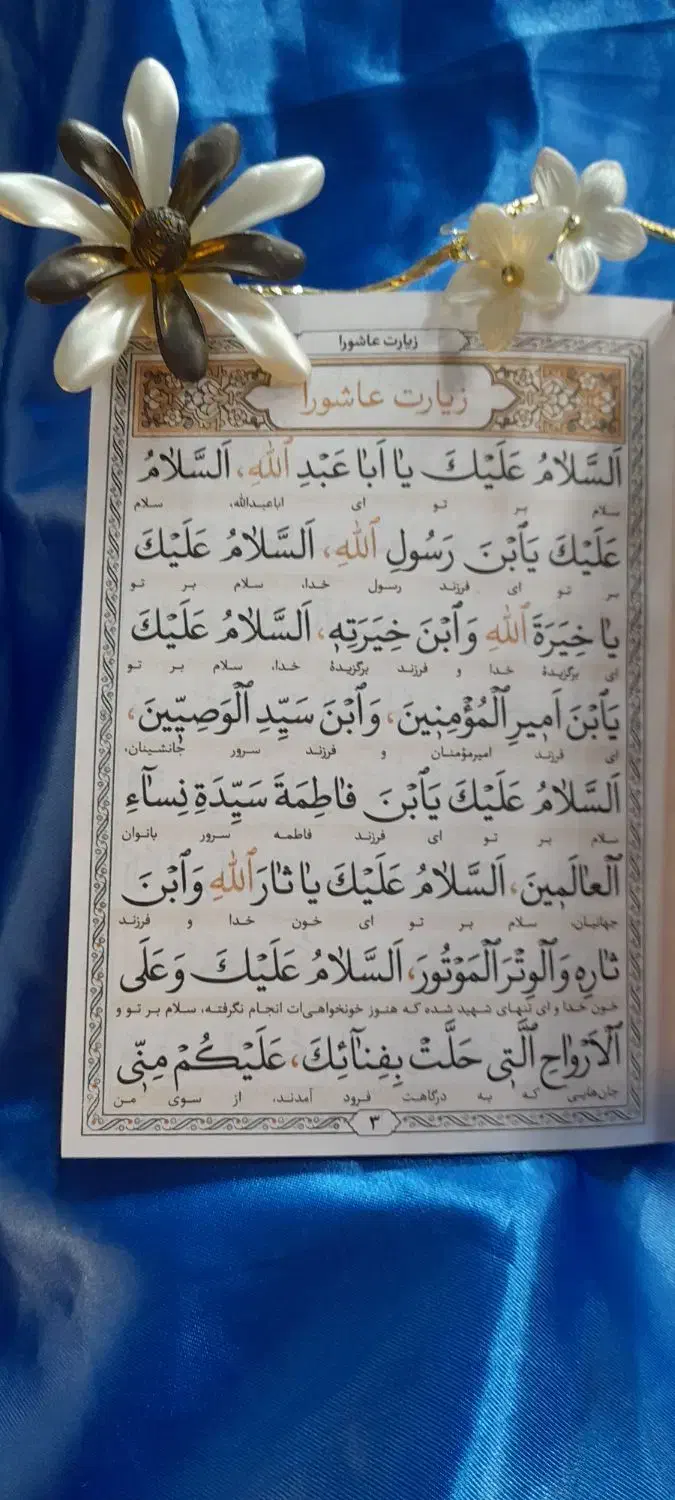 زیارت عاشورا
زیارت عاشورا
اَلسَّلامُ عَلَيْكَ يا اَبا عَبْدِ ٱللّٰهِ، اَلسَّلامُ
سلام بر تو ای اباعبدالله، سلام
عَلَيْكَ يَٱبْنَ رَسُولِ ٱللّٰهِ، اَلسَّلامُ عَلَيْكَ
بر تو ای فرزند رسول خدا، سلام بر تو
يا خِيَرَةَ ٱللّٰهِ وَٱبْنَ خِيَرَتِهٖ، اَلسَّلامُ عَلَيْكَ
ای برگزیدهٔ خدا و فرزند برگزیدهٔ خدا، سلام بر تو
يَٱبْنَ اَمٖيرِ ٱلْمُؤْمِنٖينَ، وَٱبْنَ سَيِّدِ ٱلْوَصِيّٖينَ،
ای فرزند امیرمؤمنان و فرزند سرور جانشینان،
اَلسَّلامُ عَلَيْكَ يَٱبْنَ فاطِمَةَ سَيِّدَةِ نِساۤءِ
سلام بر تو ای فرزند فاطمه سرور بانوان
ٱلْعالَمٖينَ، اَلسَّلامُ عَلَيْكَ يا ثارَ ٱللّٰهِ وَٱبْنَ
جهانیان، سلام بر تو ای خون خدا و فرزند
ثارِهٖ وَٱلْوِتْرَ ٱلْمَوْتُورَ، اَلسَّلامُ عَلَيْكَ وَعَلَى
خون خدا و ای تنهای شهید شده که هنوز خونخواهی‌ات انجام نگرفته، سلام بر تو و
ٱلْاَرْواحِ ٱلَّتٖي حَلَّتْ بِفِنآئِكَ، عَلَيْكُمْ مِنّٖي
جان‌هایی که به درگاهت فرود آمدند، از سوی من
۳